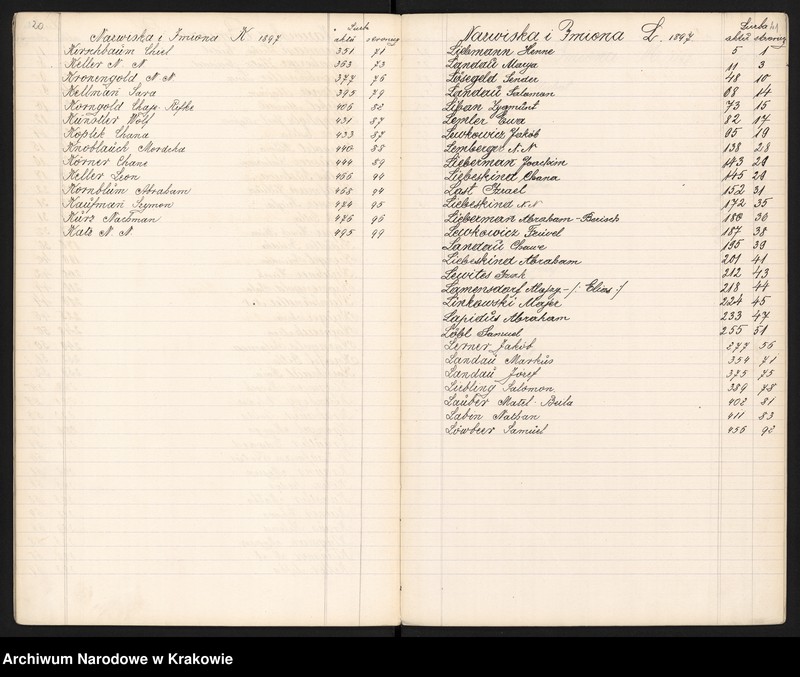 20
Nazwiska i Imiona K. 1897
Liczb
aktu stronicy
Kirschbaum Chiel 351 71
Keller N. N 363 73
Kronengold N N 377 76
Kellman Sara 395 79
Korngold Chaje Rifke 406 82
Künstler Wolf 431 87
Koplik Chana 433 87
Knoblauch Mordcha 440 88
Körner Chane 444 89
Keller Leon 466 94
Kornblum Abraham 468 94
Kaufman Szymon 474 95
Kurz Nachman 476 96
Katz N. N 495 99
Nazwiska i Imiona L. 1897
Liczba
aktu stronicy
Liebmann Henne 5 1
Landau Marya 11 3
Lösegeld Sender 48 10
Landau Salaman 68 14
Liban Zygmunt 73 15
Lemler Ewa 82 17
Lewkowicz Jakób 95 19
Lemberger N.N 138 28
Lieberman Joachim 143 29
Liebeskind Chana 145 29
Last Izrael 152 31
Liebeskind N.N 172 35
Lieberman Abraham-Berisch 180 36
Lewkowicz Feiwel 187 38
Landau Chawe 195 39
Liebeskind Abraham 201 41
Lewites Izak 212 43
Lamensdorf Majzy-/: Elias :/ 218 44
Linkowski Majer 224 45
Lapidus Abraham 233 47
Löbl Samuel 255 51
Lerner Jakób 277 56
Landau Markus 354 71
Landau Josef 375 75
Liebling Salomon 389 78
Lauber Matel Beila 402 81
Laben Nathan 411 83
Löwbeer Samuel 456 92
Archiwum Narodowe w Krakowie